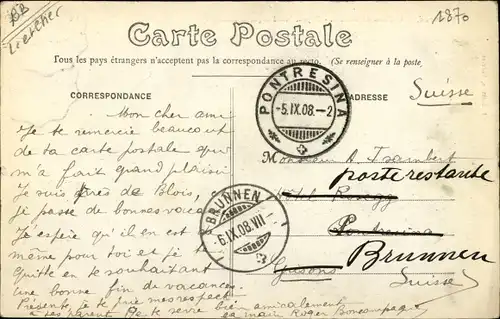 BB
1870
Loir et Cher
Carte Postale
Tous les pays étrangers n'acceptent pas la correspondance au recto. (Se renseigner à la poste
CORRESPONDANCE
ADRESSE
Suisse
PONTRESINA
-5.IX.08.-2
Mon cher ami
Je te remercie beaucoup
de ta carte postale qui
m'a fait grand plaisir
Je suis près de Blois,
je passe de bonnes vacances
J'espère qu'il en est de
même pour toi et je te
quitte en te souhaitant
une bonne fin de vacances.
Présente, je te prie mes respects
à tes parents. Je te serre bien amicalement
la main Roger Boncompagne
BRUNNEN
-6.IX.08.VII-
Monsieur A. Isambert
poste restante
Hôtel Rosegg
Pontresina
Brunnen
Grisons
Suisse